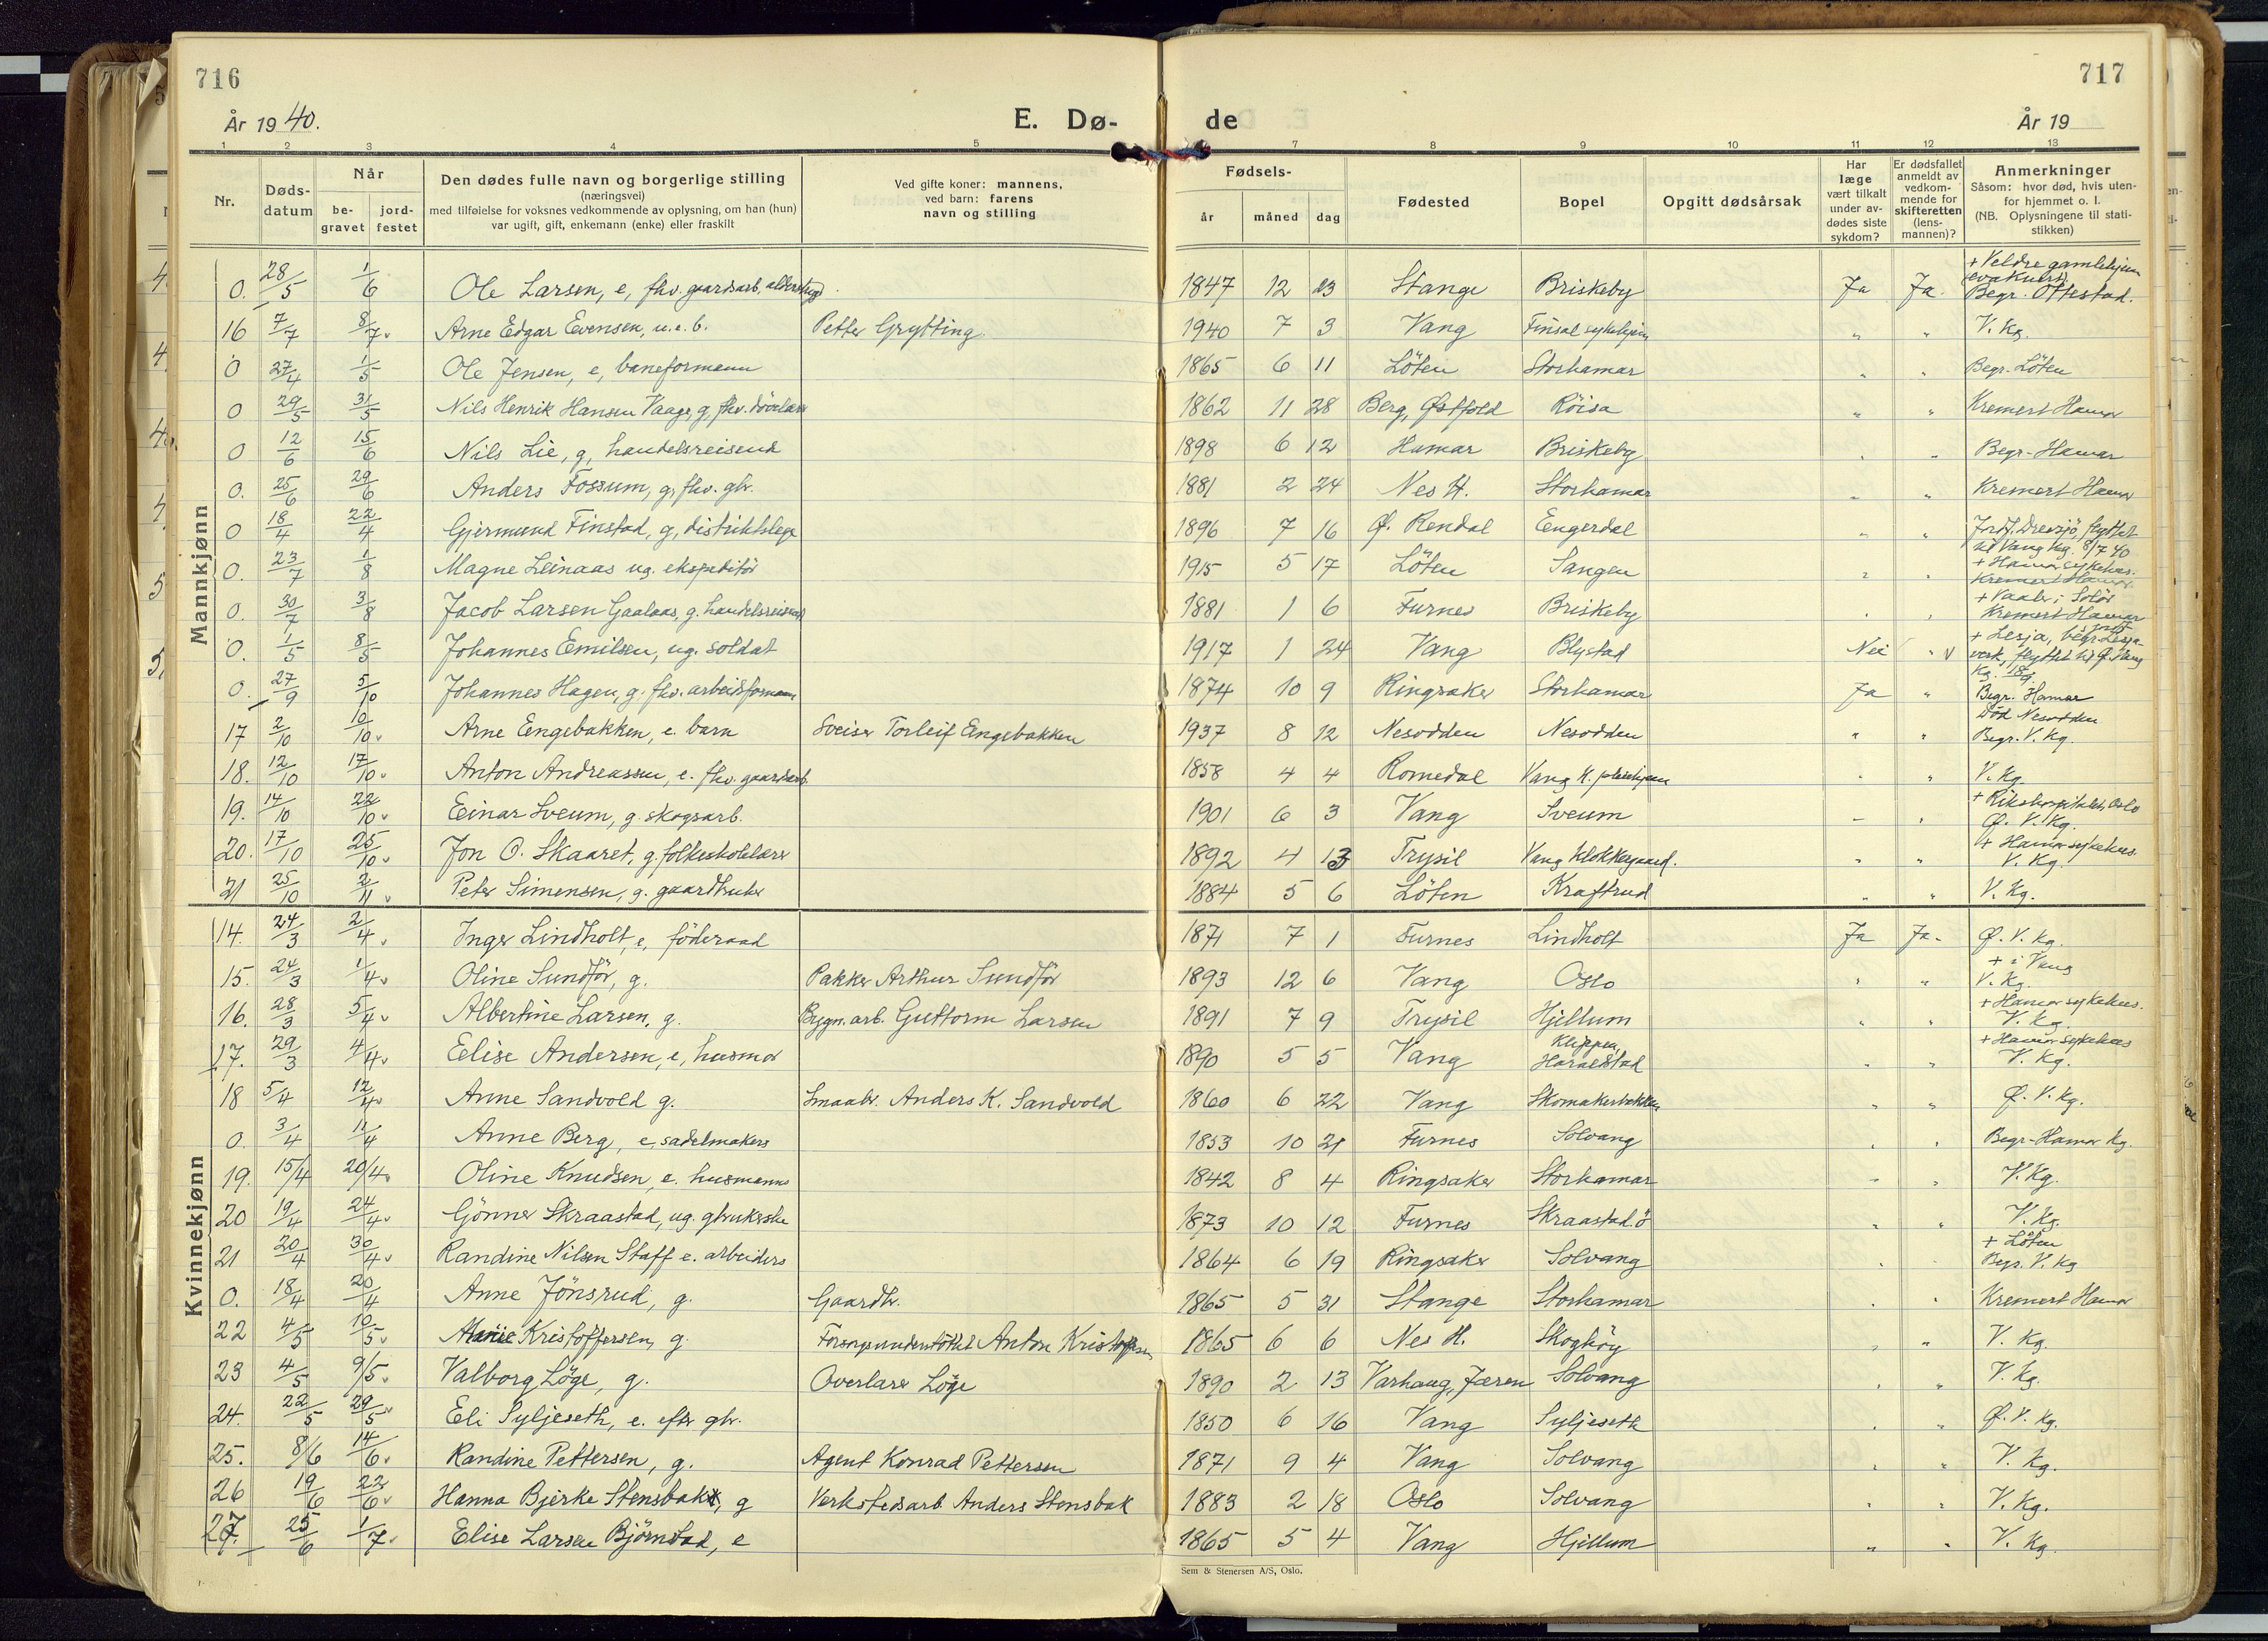 716
År 1940.
E. Dø-
de
717
År 19
1 2 3 4 5 7 8 9 10 11 12 13
Nr.
Døds-
datum
Når
be-
gravet
jord-
festet
Den dødes fulle navn og borgerlige stilling
(næringsvei)
med tilføielse for voksnes vedkommende av oplysning, om han (hun)
var ugift, gift, enkemann (enke) eller fraskilt
Ved gifte koner: mannens,
ved barn: farens
navn og stilling
Fødsels-
år måned dag
Fødested
Bopel
Opgitt dødsårsak
Har
læge
vært tilkalt
under av-
dødes siste
sykdom?
Er dødsfallet
anmeldt av
vedkom-
mende for
skifteretten
(lens-
mannen)?
Anmerkninger
Såsom: hvor død, hvis uten-
for hjemmet o. l.
(NB. Oplysningene til stati-
stikken)
Mannkjønn
0. 28/5 1/6 Ole Larsen, e, fhv. gaardsarb, alderstrygd 1847 12 23 Stange Briskeby Ja Ja. + Veldre gamlehjem (evakuert) Begr. Ottestad.
16 7/7 8/7 Arne Edgar Evensen, u.e.b. Petter Grytting 1940 7 3 Vang Finsal sykehjem " " V. Kg.
0 27/4 1/5 Ole Jensen, e, baneformann 1865 6 11 Löten Storhamar " " Begr. Löten
0 29/5 31/5 Nils Henrik Hansen Vaage, g, fhv. dövelærer 1862 11 28 Berg, Østfold Röisa " " Kremert Hamar
0 12/6 15/6 Nils Lie, g, handelsreisend 1898 6 12 Hamar Briskeby " " Begr. Hamar
0. 25/6 29/6 Anders Fossum, g, fhv. gbr. 1881 2 24 Nes H. Storhamar " " Kremert Hamar
0 18/4 22/4 Gjermund Finstad, g, distriktslege 1896 7 16 Ø. Rendal Engerdal " " Jordf. Drevsjö, flyttet til Vang Kg. 8/7 40
0. 23/7 1/8 Magne Leinaas ug. ekspeditör 1915 5 17 Löten Sangen " " + Hamar sykehus. Kremert Hamar
0. 30/7 3/8 Jacob Larsen Gaalaas, g. handelsreisend 1881 1 6 Furnes Briskeby " " + Vaaler i Solör Kremert Hamar
0. 1/5 8/5 Johannes Emilsen, ug. soldat 1917 1 24 Vang Blystad Nei " v + Lesja, begr. Lesja verk, flyttet til Ø. Vang Kg.
0. 27/9 5/10 Johannes Hagen, g. fhv. arbeidsformann 1874 10 9 Ringsaker Storhamar Ja " Begr. Hamar
17 2/10 10/10 Arne Engebakken, e. barn Sveiser Torleif Engebakken 1937 8 12 Nesodden Nesodden " " Död Nesodden Begr. V. Kg.
18. 12/10 17/10 Anton Andreassen, e. fhv. gaardsarb. 1858 4 4 Romedal Vang K. pleiehjem " " V. Kg.
19. 14/10 22/10 Einar Sveum, g. skogsarb. 1901 6 3 Vang Sveum " " + Rikshospitalet, Oslo Ø. V. Kg.
20. 17/10 25/10 Jon O. Skaaret, g. folkeskolelærer 1892 4 13 Trysil Vang Klokkergaard. " " + Hamar sykehus. V. Kg.
21 25/10 2/11 Peter Simensen, g. gaardbruker 1884 5 6 Löten Kraftrud " " V. Kg.
Kvinnekjønn
14. 24/3 2/4 Inger Lindholt, e, föderaad 1871 7 1 Furnes Lindholt Ja Ja. Ø. V. Kg.
15. 24/3 1/4 Oline Sundför, g. Pakker Arthur Sundför 1893 12 6 Vang Oslo " " + i Vang V. Kg.
16. 28/3 5/4 Albertine Larsen, g. Bygn. arb. Guttorm Larsen 1891 7 9 Trysil Hjellum " " + Hamar sykehus. V. Kg.
17. 29/3 4/4 Elise Andersen, e, husmor 1890 5 5 Vang Klippen, Haraldstad " " + Hamar sykehus V. Kg.
18 5/4 12/4 Anne Sandvold g. Smaabr. Anders K. Sandvold 1860 6 22 Vang Skomakerbakken " " Ø. V. Kg.
0. 3/4 11/4 Anne Berg, e, sadelmakers 1853 10 21 Furnes Solvang " " Begr. Hamar Kg.
19. 15/4 20/4 Oline Knudsen, e. husmanns 1842 8 4 Ringsaker Storhamar " " V. Kg.
20 19/4 24/4 Gönner Skraastad, ug. gbrukerske 1873 10 12 Furnes Skraastad ö " " V. Kg.
21 20/4 30/4 Randine Nilsen Staff e. arbeiders 1864 6 19 Ringsaker Solvang " " + Löten Begr. V. Kg
0. 18/4 20/4 Anne Jönsrud, g. Gaardbr. 1865 5 31 Stange Storhamar " " Kremert Hamar
22 4/5 10/5 Marie Kristoffersen, g. Forsorgsunderstöttet Anton Kristoffersen 1865 6 6 Nes H. Skoghöy " " V. Kg.
23 4/5 9/5 Valborg Löge, g. Overlærer Löge 1890 2 13 Varhaug, Jæren Solvang " " V. Kg.
24. 22/5 29/5 Eli Syljeseth, e. efter gbr. 1850 6 16 Vang Syljeseth " " Ø. V. Kg.
25. 8/6 14/6 Randine Pettersen, g. Agent Konrad Pettersen 1871 9 4 Vang Solvang " " V. Kg.
26 19/6 22/6 Hanna Bjerke Stensbak, g Verkstedsarb. Anders Stensbak 1883 2 18 Oslo Solvang " " V. Kg.
27. 25/6 1/7 Elise Larsen Björnstad, e 1865 5 4 Vang Hjellum " " V. Kg.
Sem & Stenersen A/S, Oslo.